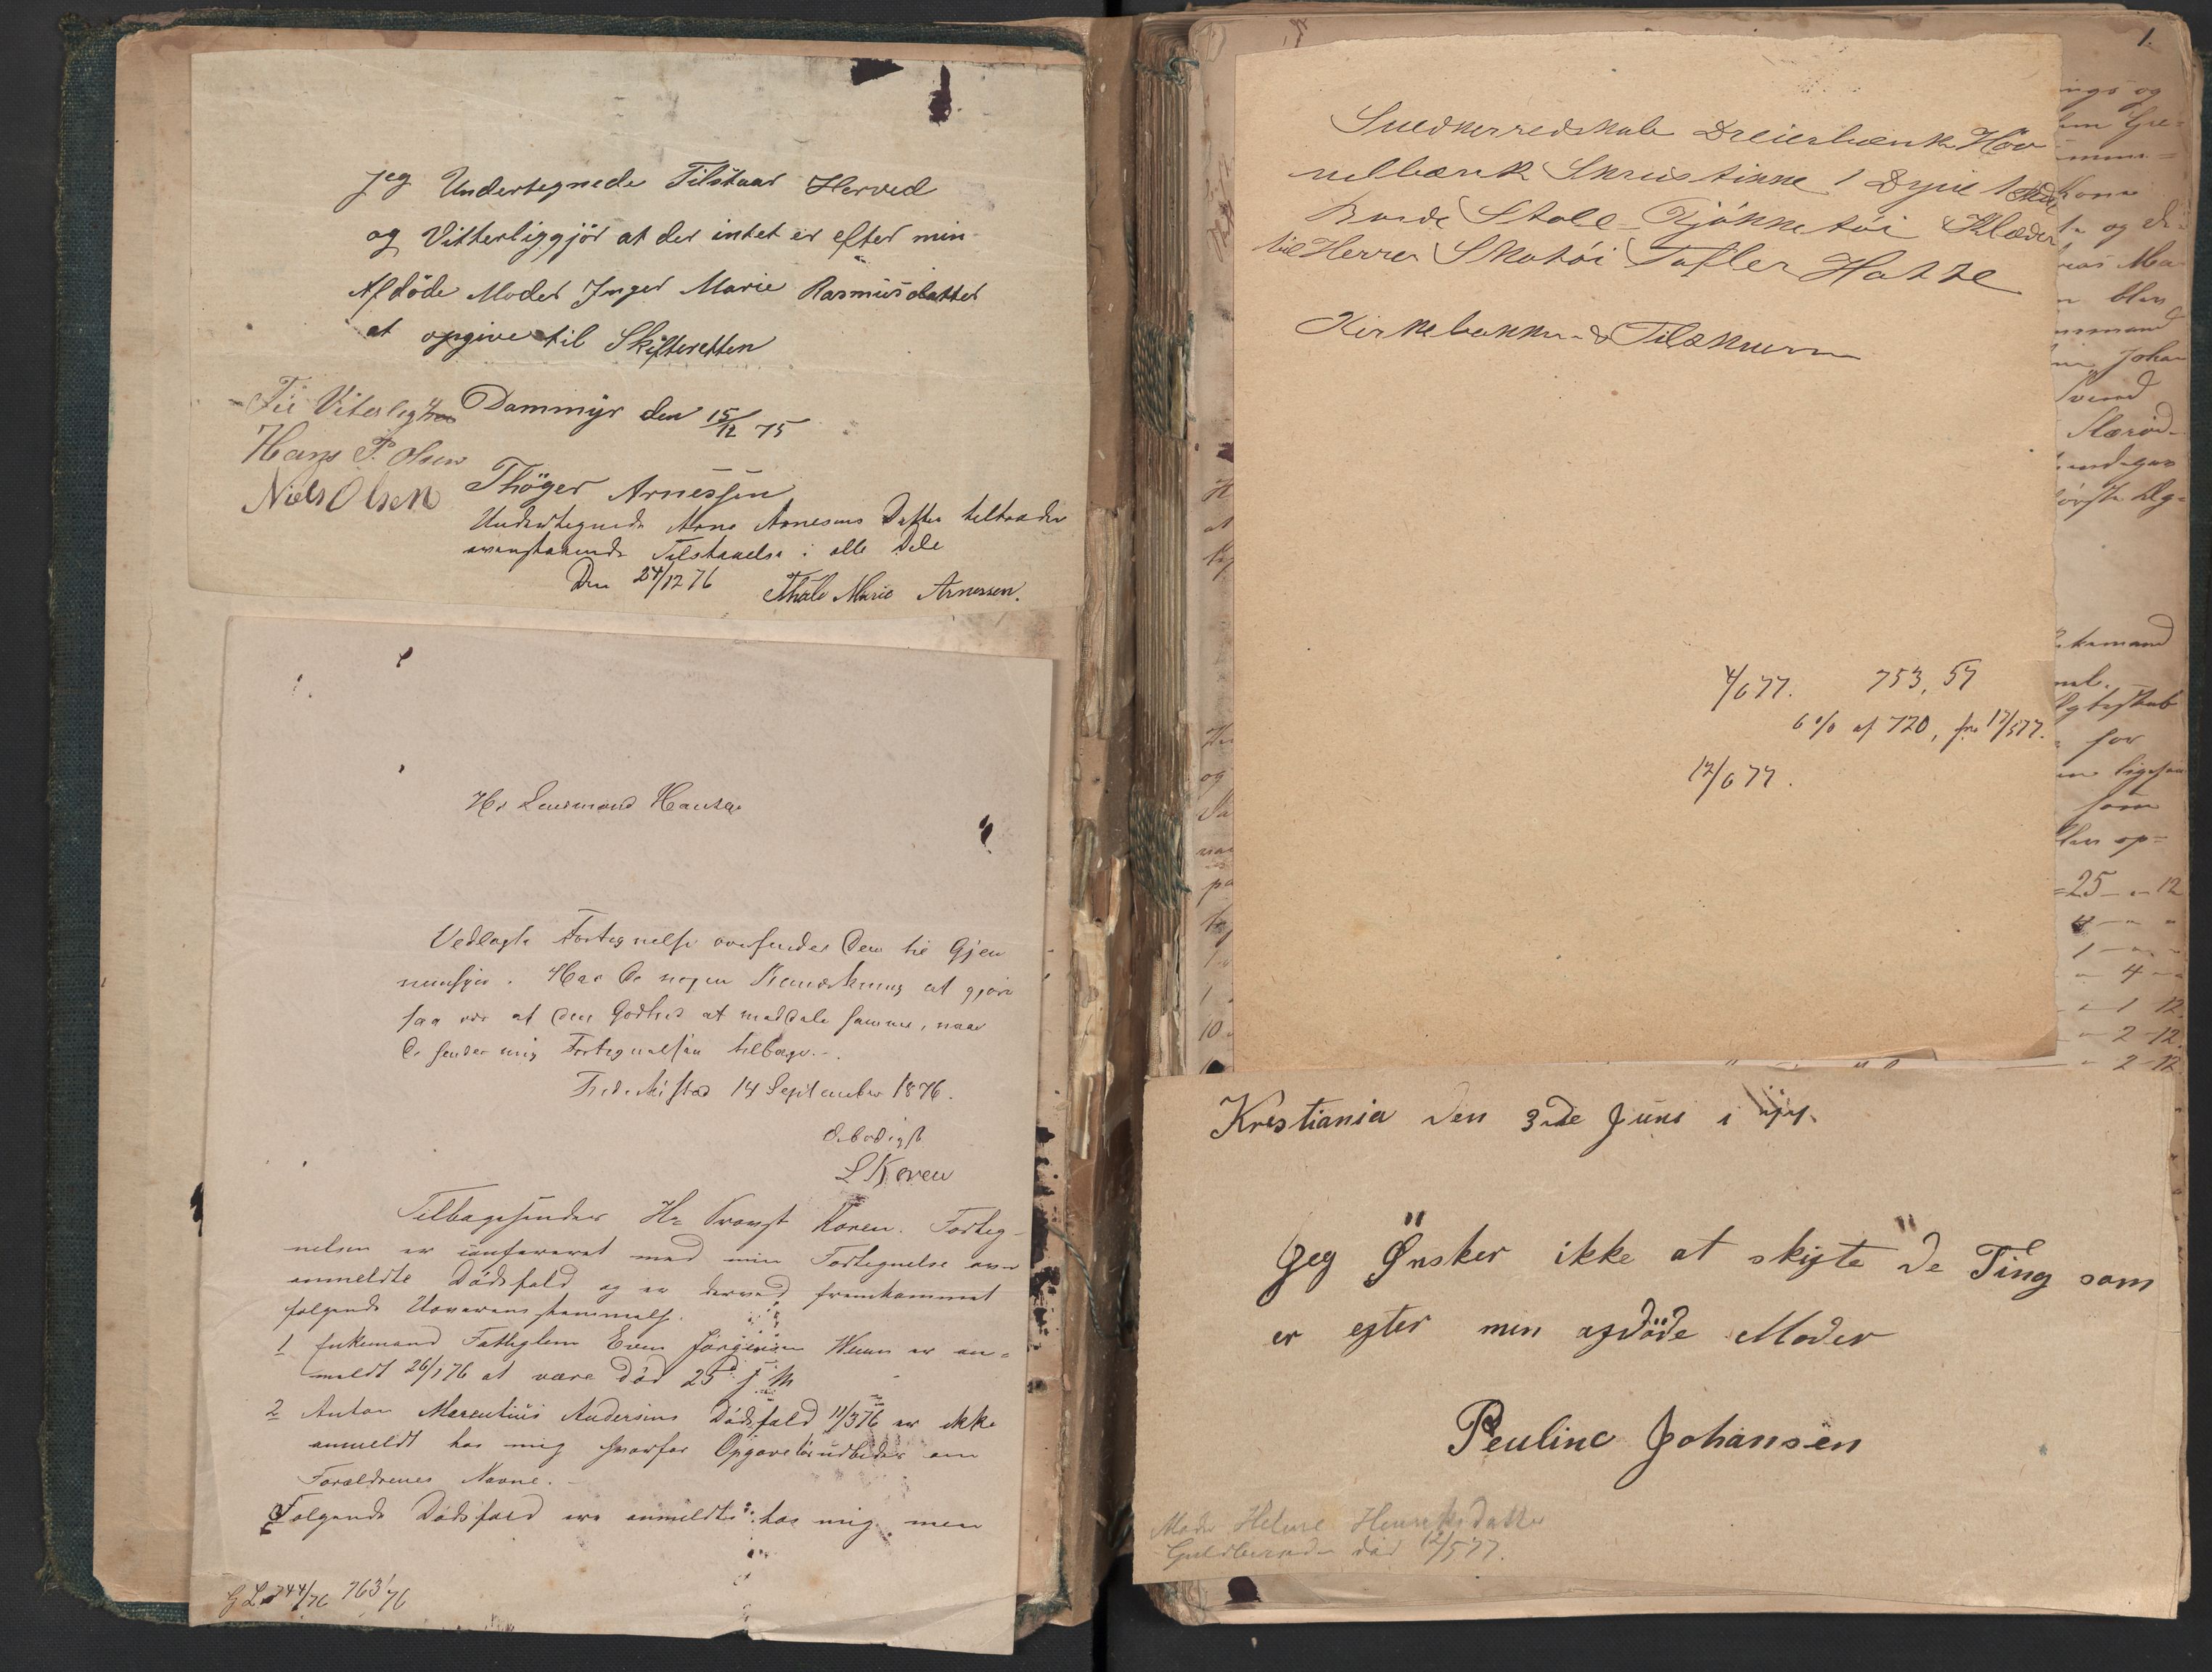 Jeg Undertegnede Tilstaar Herved
og Vitterliggjör at der intet er efter min
Afdöde Moder Inger Marie Rasmusdatter
at opgive til Skifteretten
Dammyr den 15/12 75
Til Viterlighed
Hans P. Olsen
Niels Olsen
Thöger Arnessen
Undertegnede Arne Arnesens Datter tiltræder
ovenstaaende Tilstaaelse i alle Dele
Den 24/12 76 Thale Marie Arnessen.
Hr Lensmand Hansen
Vedlagte Fortegnelse oversendes Dem til Gjen
nemsyn. Har De nogen Bemærkning at gjøre
saa vær af den Godhed at meddele samme, naar
De sender mig Fortegnelsen tilbage.
Frederikstad 14 September 1876.
Ærbödigst
L Koren
Tilbagesendes Hr Provst Koren. Forteg-
nelsen er confereret med min Fortegnelse over
anmeldte Dödsfald og er derved fremkommet
følgende Uoverensstemmelse.
1 Enkemand Fattiglem Even Jörgensen er an-
meldt 26/1 76 at være död 25 j M
2 Anton Marentius Andersens Dödsfald 11/3 76 er ikke
anmeldt hos mig hvorfor Opgave udbedes om
Forældrenes Navne.
Følgende Dödsfald ere anmeldte hos mig men
744/76 763/76
1.
Snedkerredskab Dreierbænk Höv
velbænk Skrustinne 1 Dyne 1
Borde Stole Kjökketöi Klæder
til Herrer Skotöi Tafler Hatte
Kirkebakken Tilskuern
4/6 77. 753, 57
6 % af 720, fra 17/5 77.
12/6 77.
Krestiania den 3de Juni i
Jeg Önsker ikke at skifte de Ting som
er efter min afdöde Moder
Peuline Johansen
Moder Helene Henriksdatter
död 12/5 77.